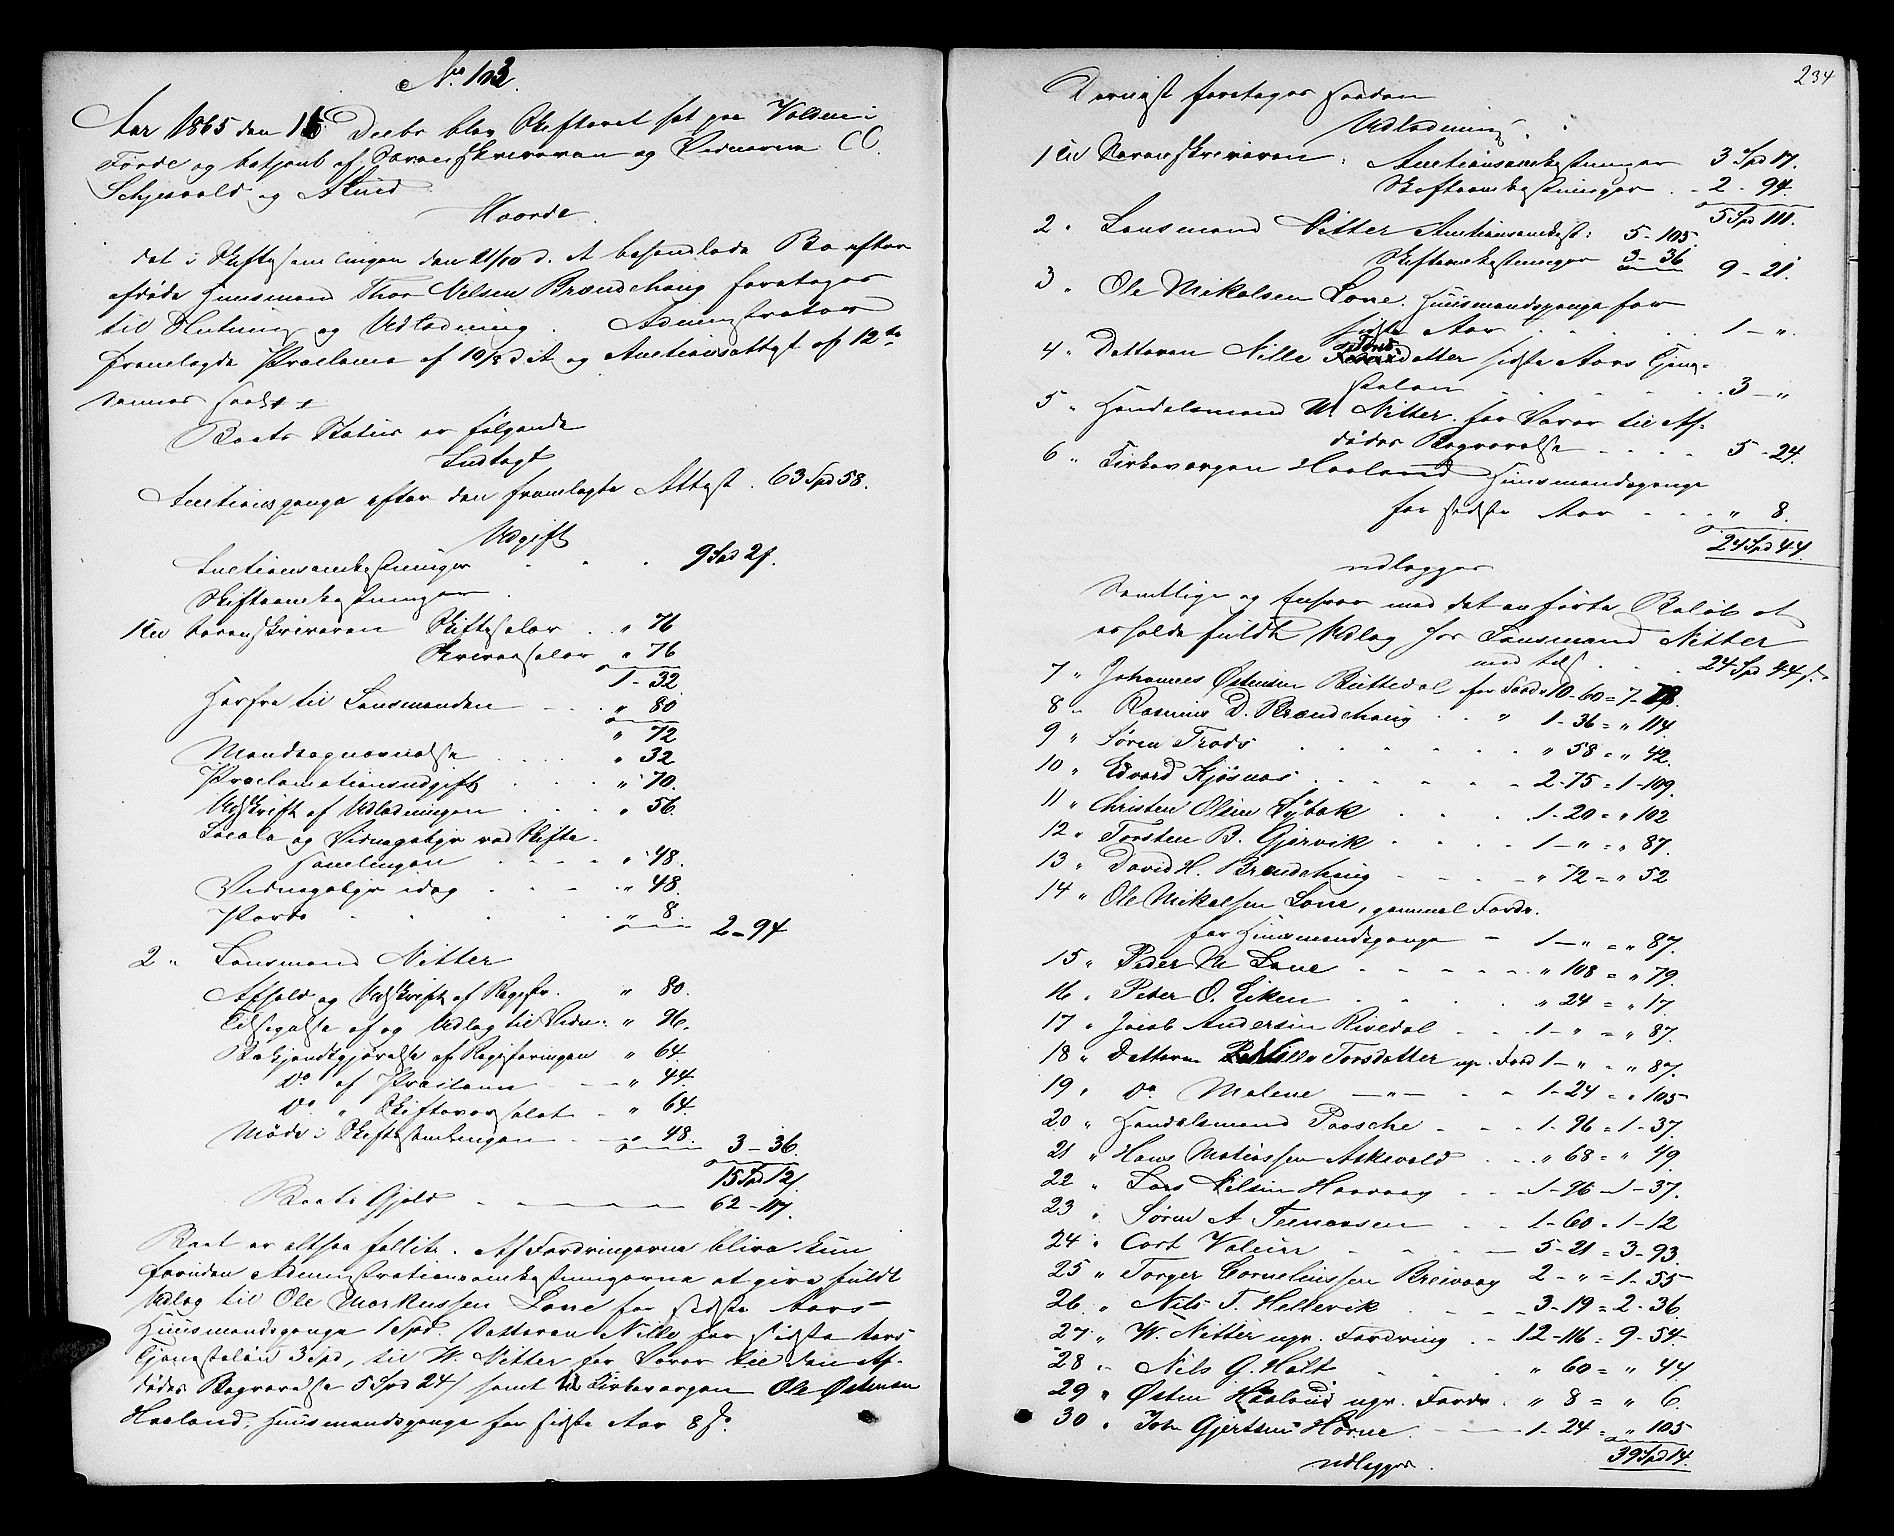 No 103.
Aar 1865 den 16 Decbr blev Skifteret sat paa Volden i
Førde og betjent af Sorenskriveren og Vidnerne C C.
Schjesvold og A Lund
Hvorda
det i Skiftesamlingen den 21/10 d. A behandlede Bo efter
afdøde Huusmand Thor Nilsen Brændehaug foretoges
til Slutning og Udlodning. Administrator
fremlagde Proclama af 10/8 d A og Auctionsattest af 12te
Boets Status er følgende
Indtægt
Auctionspenge efter den fremlagte Attest . 63 Spd 58.
Udgift
Auctionsomkostninger . . . 9 Spd 21.
Skifteomkostninger .
1 Til Sorenskriveren Skiftesalær . " 76
Skriversalær " 76
1 - 32
Herfra til Lensmanden . . . " 80
" 72
Mandsopnævnelse . . . . " 32
Proclamationsudgift . . . " 70.
Udskrift af Udlodningen . . . " 56.
Locale og Vidnegebyr ved Skifte-
samlingen . . . . " 48.
Vidnegebyr idag . . . . " 48.
Porto . . . . . " 8. 2 - 94
2 " Lensmand Nitter
Afhold og Udskrift af Registr. " 80.
Tilsigelse af og Udlæg til Vidn. " 96.
Bekjendtgjørelse af Registeringen " 64.
Do af Proclama . . " 44.
Do. " Skifteværsalet . " 64.
Møde i Skiftesamlingen . . 48. 3 - 36.
15 Spd 121
Boets Gjeld . . . . 62 - 117.
Boet er altsaa fallit. Af Fordringerne blive kun
foruden Administrationsomkostningerne at give fuldt
Udlæg til Ole Markussen Lone for sidste Aars
Huusmandspenge 1 Spd. Datteren Nille for sidste Aars
Tjenesteløn 3 Spd, til W. Nitter for Varer til den Af-
dødes Begravelse 5 Spd 24 / samt til Kirkeværgen Ole Østensen
Haaland, Huusmandspenge for sidste Aar 8 /s.
234
Dernæst foretoges saadan
Udlodning.
1 Til Sorenskriveren: Auctionsomkostninger 3 Spd 17.
Skifteomkostninger . . 2 - 94.
5 Spd 111.
2 " Lensmand Nitter Auctionsomkost: 5 - 105.
Skifteomkostninger 3 - 36 9 - 21.
3 " Ole Mikalsen Lone. Huusmandspenge for
sidste Aar . . . . . 1 - ".
4 " Datteren Nille Torsdatter sidste Aars Tjene-
steløn . . . . . . 3 - "
5 " Handelsmand W Nitter for Varer til Af-
dødes Begravelse . . . . 5 - 24.
6 " Kirkeværgen Haaland Huusmandspenge
for sidste Aar . . . " 8.
24 Spd 44.
udlægges
Samtlige og Enhver med det anførte Beløb at
erholde fuldt Udlæg hos Lensmand Nitter
med tils . . . 24 Spd 44 s
7 " Johannes Østensen Buttedal for Fords 10 - 60 = 7 - 78.
8 " Rasmus D. Brændehaug . . " 1 - 36 = " 114.
9 " Søren Trods . . . . . . " 58 = " 42.
10 " Edvard Kjøsnæs . . . . . 2 - 75 = 1 - 109.
11 " Christen Olsen Sybak . . . . 1 - 20 = " 102
12 " Torsten B. Gjervik . . . . 1 - " = " 87.
13 " David H. Brændehaug . . . . " 72 = " 52
14 " Ole Mikalsen Lone, gammel Fordr.
for Huusmandspenge - 1 - " = " 87.
15 " Peder M Lone . . . . . . " 108 = " 79.
16 " Peter O. Eiken . . . . . " 24 = " 17
17 " Jacob Andersen Rivedal . . . 1 - " = " 87.
18 " Datteren Nille Torsdatter upr. Ford 1 - " = " 87.
19 " Do Malene — " — . . 1 - 24 = " 105
20 " Handelsmand Paasche . . . 1 - 96 = 1 - 37.
21 " Hans Matiassen Askevold . . . " 68 = " 49.
22 " Lars Nilsen Haavaag . . . 1 - 96 = 1 - 37.
23 " Søren A Teenæssen . . 1 - 60 = 1 - 12
24 " Cort Valeur . . . . 5 - 21 = 3 - 93.
25 " Torger Corneliussen Breivaag 2 - " = 1 - 55
26 " Nils T. Hellevik . . . 3 - 19 = 2 - 36.
27 " W. Nitter upr. Fordring . . 12 - 116 = 9 - 54.
28 " Nils G. Holt . . . . " 60 = " 44
29 " Østen Haaland upr. Fordr. " 8 = " 6.
30 " Joh Gjertsen Horne . . . 1 - 24 = " 105
39 Spd 14.
udlægges.